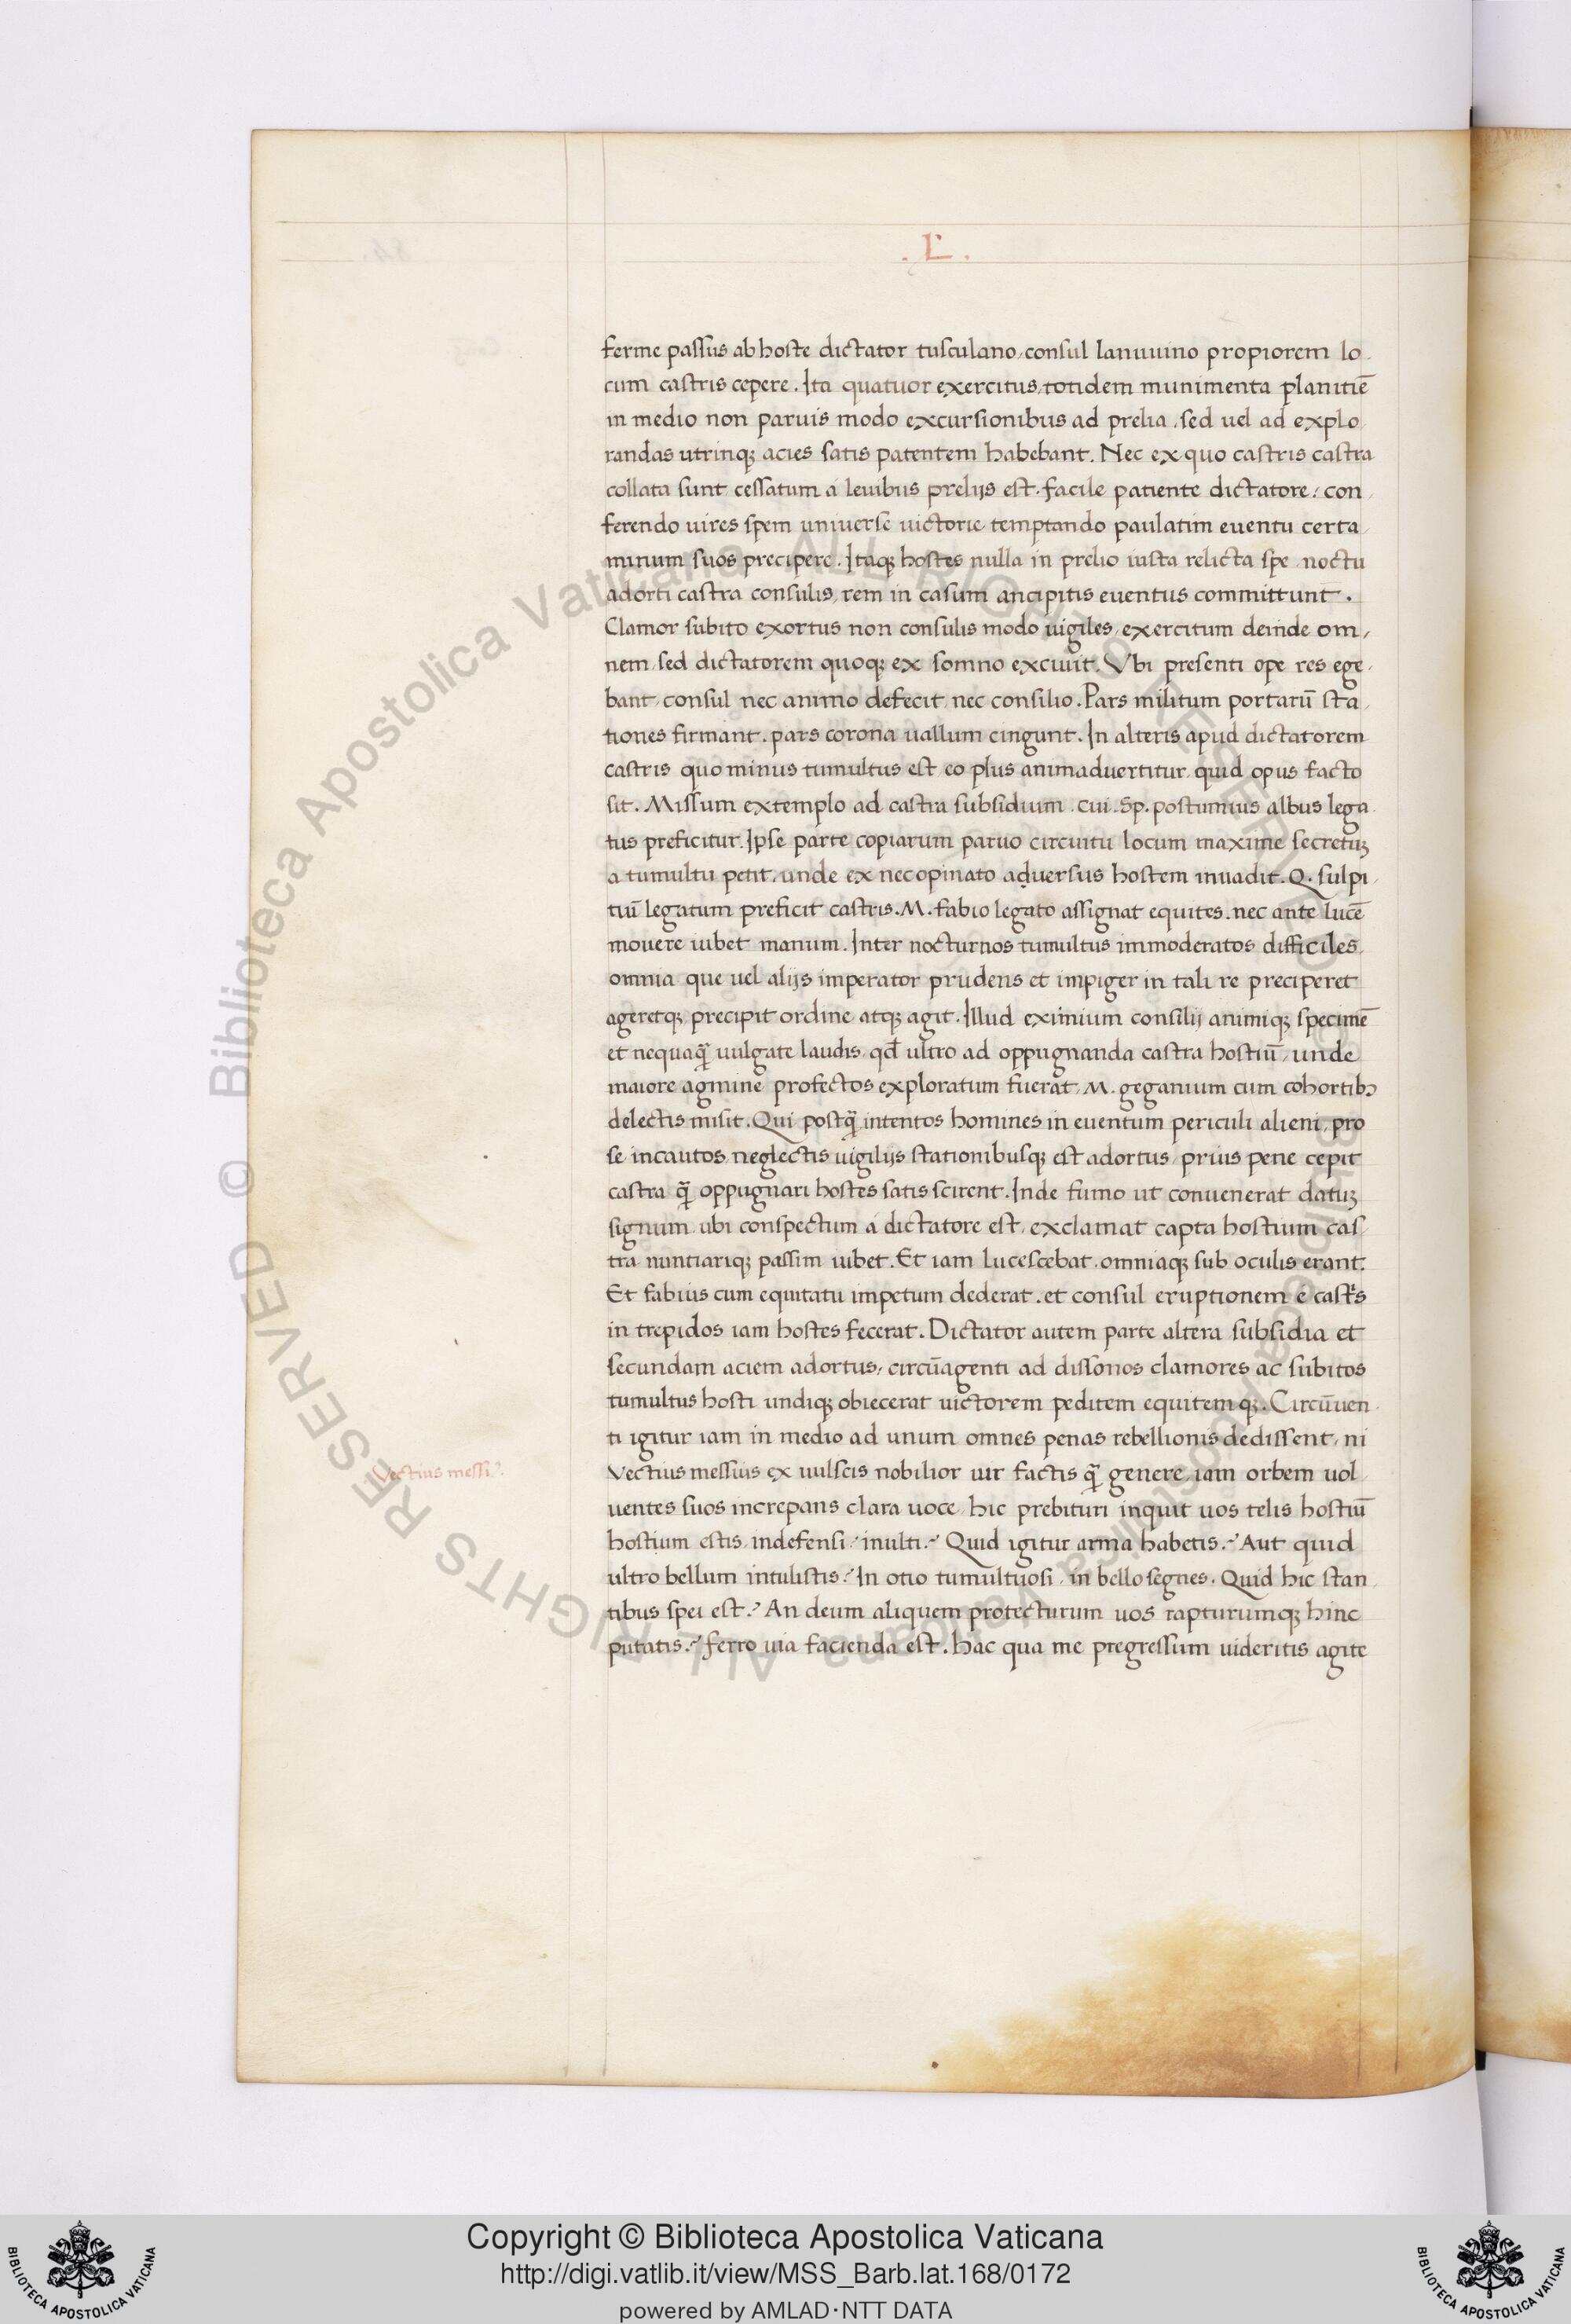 .L.
ferme passus ab hoste dictator tusculano, consul lanuuino propiorem lo-
cum castris cepere. Ita quatuor exercitus, totidem munimenta planitiē
in medio non paruis modo excursionibus ad prelia, sed uel ad explo-
randas utrinqꝫ acies satis patentem habebant. Nec ex quo castris castra
collata sunt cessatum a leuibus prelijs est. facile patiente dictatore: con-
ferendo uires spem uniuerse uictorie temptando paulatim euentu certa-
minum suos precipere. Itaqꝫ hostes nulla in prelio iusta relicta spe noctu
adorti castra consulis, rem in casum ancipitis euentus committunt.
Clamor subito exortus non consulis modo uigiles, exercitum deinde om-
nem, sed dictatorem quoqꝫ ex somno exciuit. Vbi presenti ope res ege-
bant, consul nec animo defecit nec consilio. Pars militum portarū sta-
tiones firmant. pars corona uallum cingunt. In alteris apud dictatorem
castris quo minus tumultus est eo plus animaduertitur quid opus facto
sit. Missum extemplo ad castra subsidium. cui Sp. postumius albus lega-
tus preficitur. Ipse parte copiarum paruo circuitu locum maxime secretuꝫ
a tumultu petit, unde ex necopinato aduersus hostem inuadit. Q. sulpi-
tiū legatum preficit castris. M. fabio legato assignat equites. nec ante lucē
mouere iubet manum. Inter nocturnos tumultus immoderatos difficiles
omnia que uel alijs imperator prudens et impiger in tali re preciperet
ageretqꝫ precipit ordine atqꝫ agit. Illud eximium consilij animiqꝫ specimē
et nequaq̄ uulgate laudis, qd̄ ultro ad oppugnanda castra hostiū, unde
maiore agmine profectos exploratum fuerat, M. geganium cum cohortibꝫ
delectis misit. Qui postq̄ intentos homines in euentum periculi alieni, pro
se incautos neglectis uigilijs stationibusqꝫ est adortus, prius pene cepit
castra q̄ oppugnari hostes satis scirent. Inde fumo ut conuenerat datuꝫ
signum ubi conspectum a dictatore est, exclamat capta hostium cas-
tra nuntiariqꝫ passim iubet. Et iam lucescebat, omniaqꝫ sub oculis erant.
Et fabius cum equitatu impetum dederat. et consul eruptionem e castr̄s
in trepidos iam hostes fecerat. Dictator autem parte altera subsidia et
secundam aciem adortus, circūagenti ad dissonos clamores ac subitos
tumultus hosti undiqꝫ obiecerat uictorem peditem equitemqꝫ. Circūuen-
ti igitur iam in medio ad unum omnes penas rebellionis dedissent, ni
Vectius messi⁹.
Vectius messius ex uulscis nobilior uir factis q̄ genere, iam orbem uol-
uentes suos increpans clara uoce, hic prebituri inquit uos telis hostiū
hostium estis, indefensi, inulti? Quid igitur arma habetis? Aut quid
ultro bellum intulistis? In otio tumultuosi, in bello segnes. Quid hic stan-
tibus spei est? An deum aliquem protecturum uos rapturumqꝫ hinc
putatis? ferro uia facienda est. hac qua me pregressum uideritis agite
© Biblioteca Apostolica Vaticana ALL RIGHTS RESERVED
Copyright © Biblioteca Apostolica Vaticana
http://digi.vatlib.it/view/MSS_Barb.lat.168/0172
powered by AMLAD·NTT DATA
BIBLIOTECA APOSTOLICA VATICANA
BIBLIOTECA APOSTOLICA VATICANA